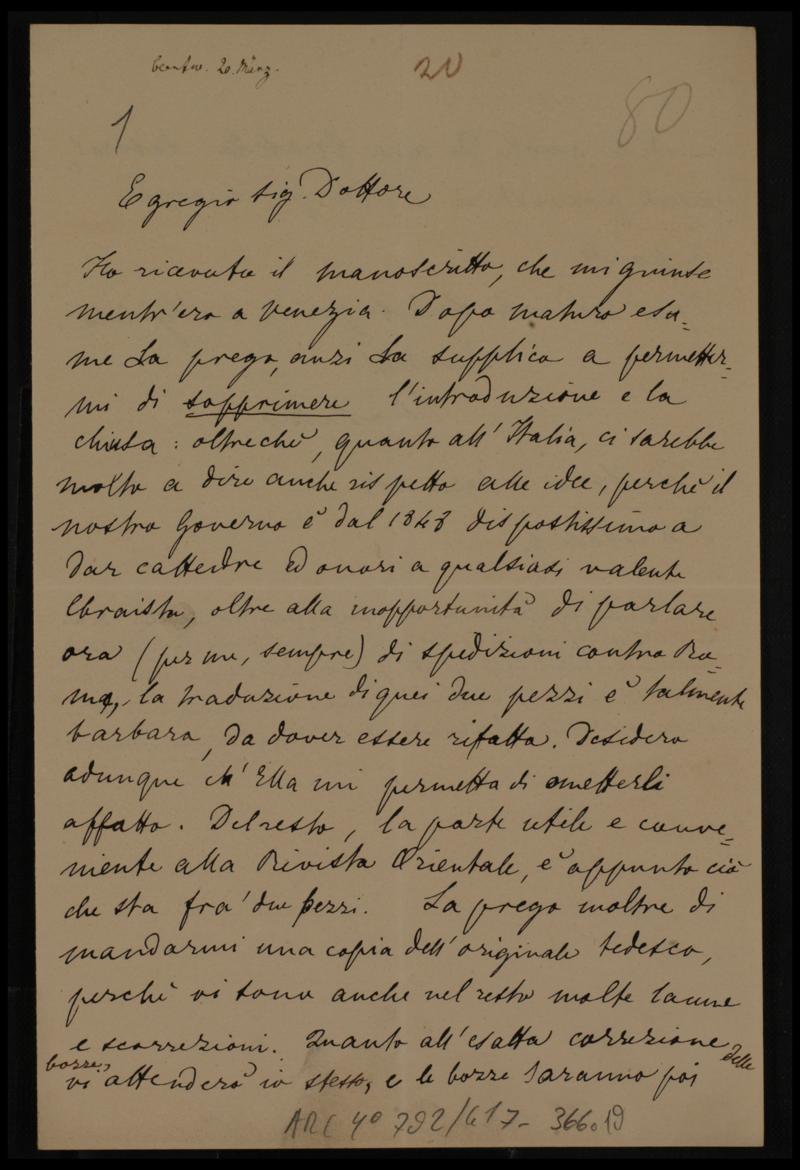 beantw. 20. März.
20
80
1
Egregio Sig. Dottore
Ho ricevuto il manoscritto, che mi giunse
mentr'ero a Venezia. Dopo maturo esa-
me La prego, anzi La supplico a permetter-
mi di sopprimere l'introduzione e la
chiusa: oltrechè, quanto all'Italia, ci sarebbe
molto a dire anche rispetto alle idee, perchè il
nostro Governo è dal 1848 dispostissimo a
dar cattedre ed onori a qualsiasi valente
Ebraista, oltre alla inopportunità di parlare
ora (per me, sempre) di spedizioni contro Ro-
ma, la traduzione di quei due pezzi è talmente
barbara, da dover essere rifatta. Desidero
adunque ch'Ella mi permetta di ometterli
affatto. Del resto, la parte utile e conve-
niente alla Rivista Orientale, è appunto ciò
che sta fra' due pezzi. La prego inoltre di
mandarmi una copia dell'originale tedesco,
perchè vi sono anche nel resto molte lacune
e scorrezioni. Quanto all'esatta correzione delle
bozze, vi attenderò io stesso, e le bozze saranno poi
ARC 4° 792/G17-366.19